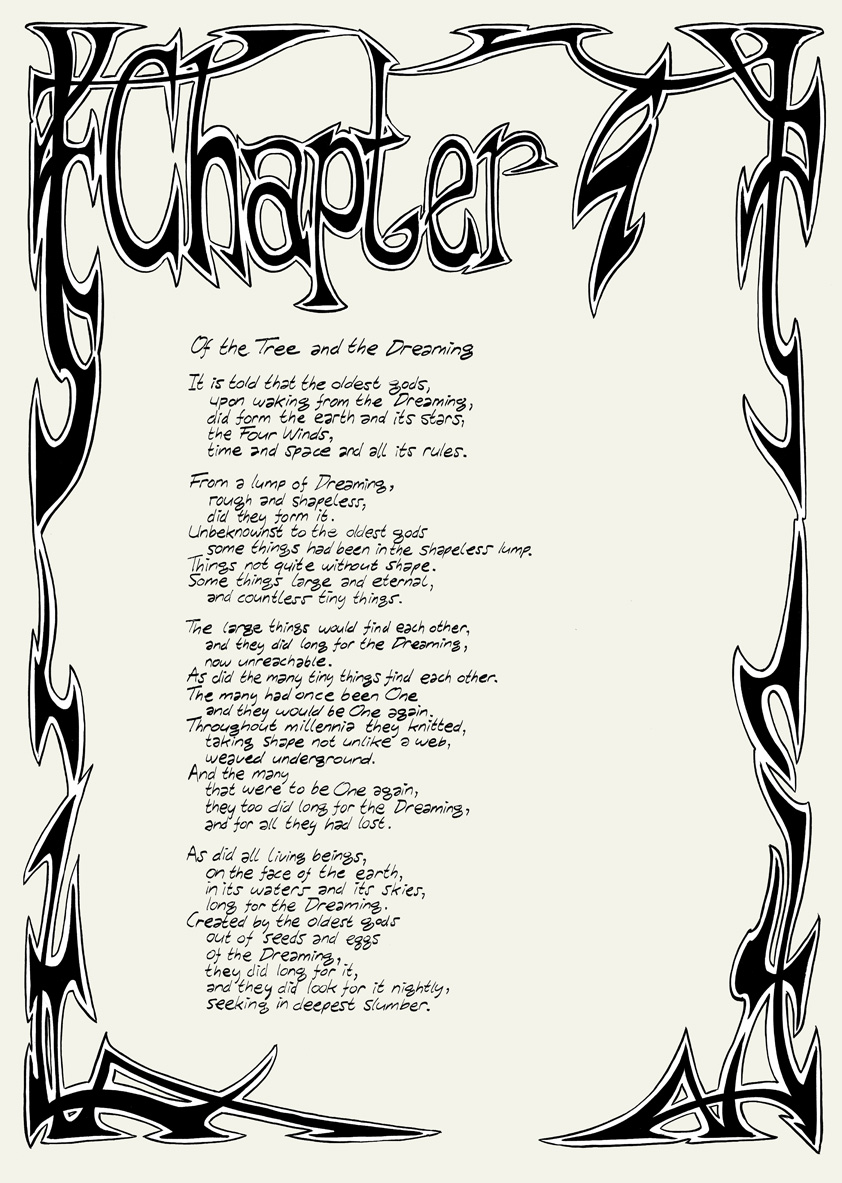 Chapter 1
Of the Tree and the Dreaming
It is told that the oldest gods,
upon waking from the Dreaming,
did form the earth and its stars,
the Four Winds,
time and space and all its rules.
From a lump of Dreaming,
rough and shapeless,
did they form it.
Unbeknownst to the oldest gods
some things had been in the shapeless lump.
Things not quite without shape.
Some things large and eternal,
and countless tiny things.
The large things would find each other,
and they did long for the Dreaming,
now unreachable.
As did the many tiny things find each other.
The many had once been One
and they would be One again.
Throughout millennia they knitted,
taking shape not unlike a web,
weaved underground.
And the many
that were to be One again,
they too did long for the Dreaming,
and for all they had lost.
As did all living beings,
on the face of the earth,
in its waters and its skies,
long for the Dreaming.
Created by the oldest gods
out of seeds and eggs
of the Dreaming,
they did long for it,
and they did look for it nightly,
seeking in deepest slumber.